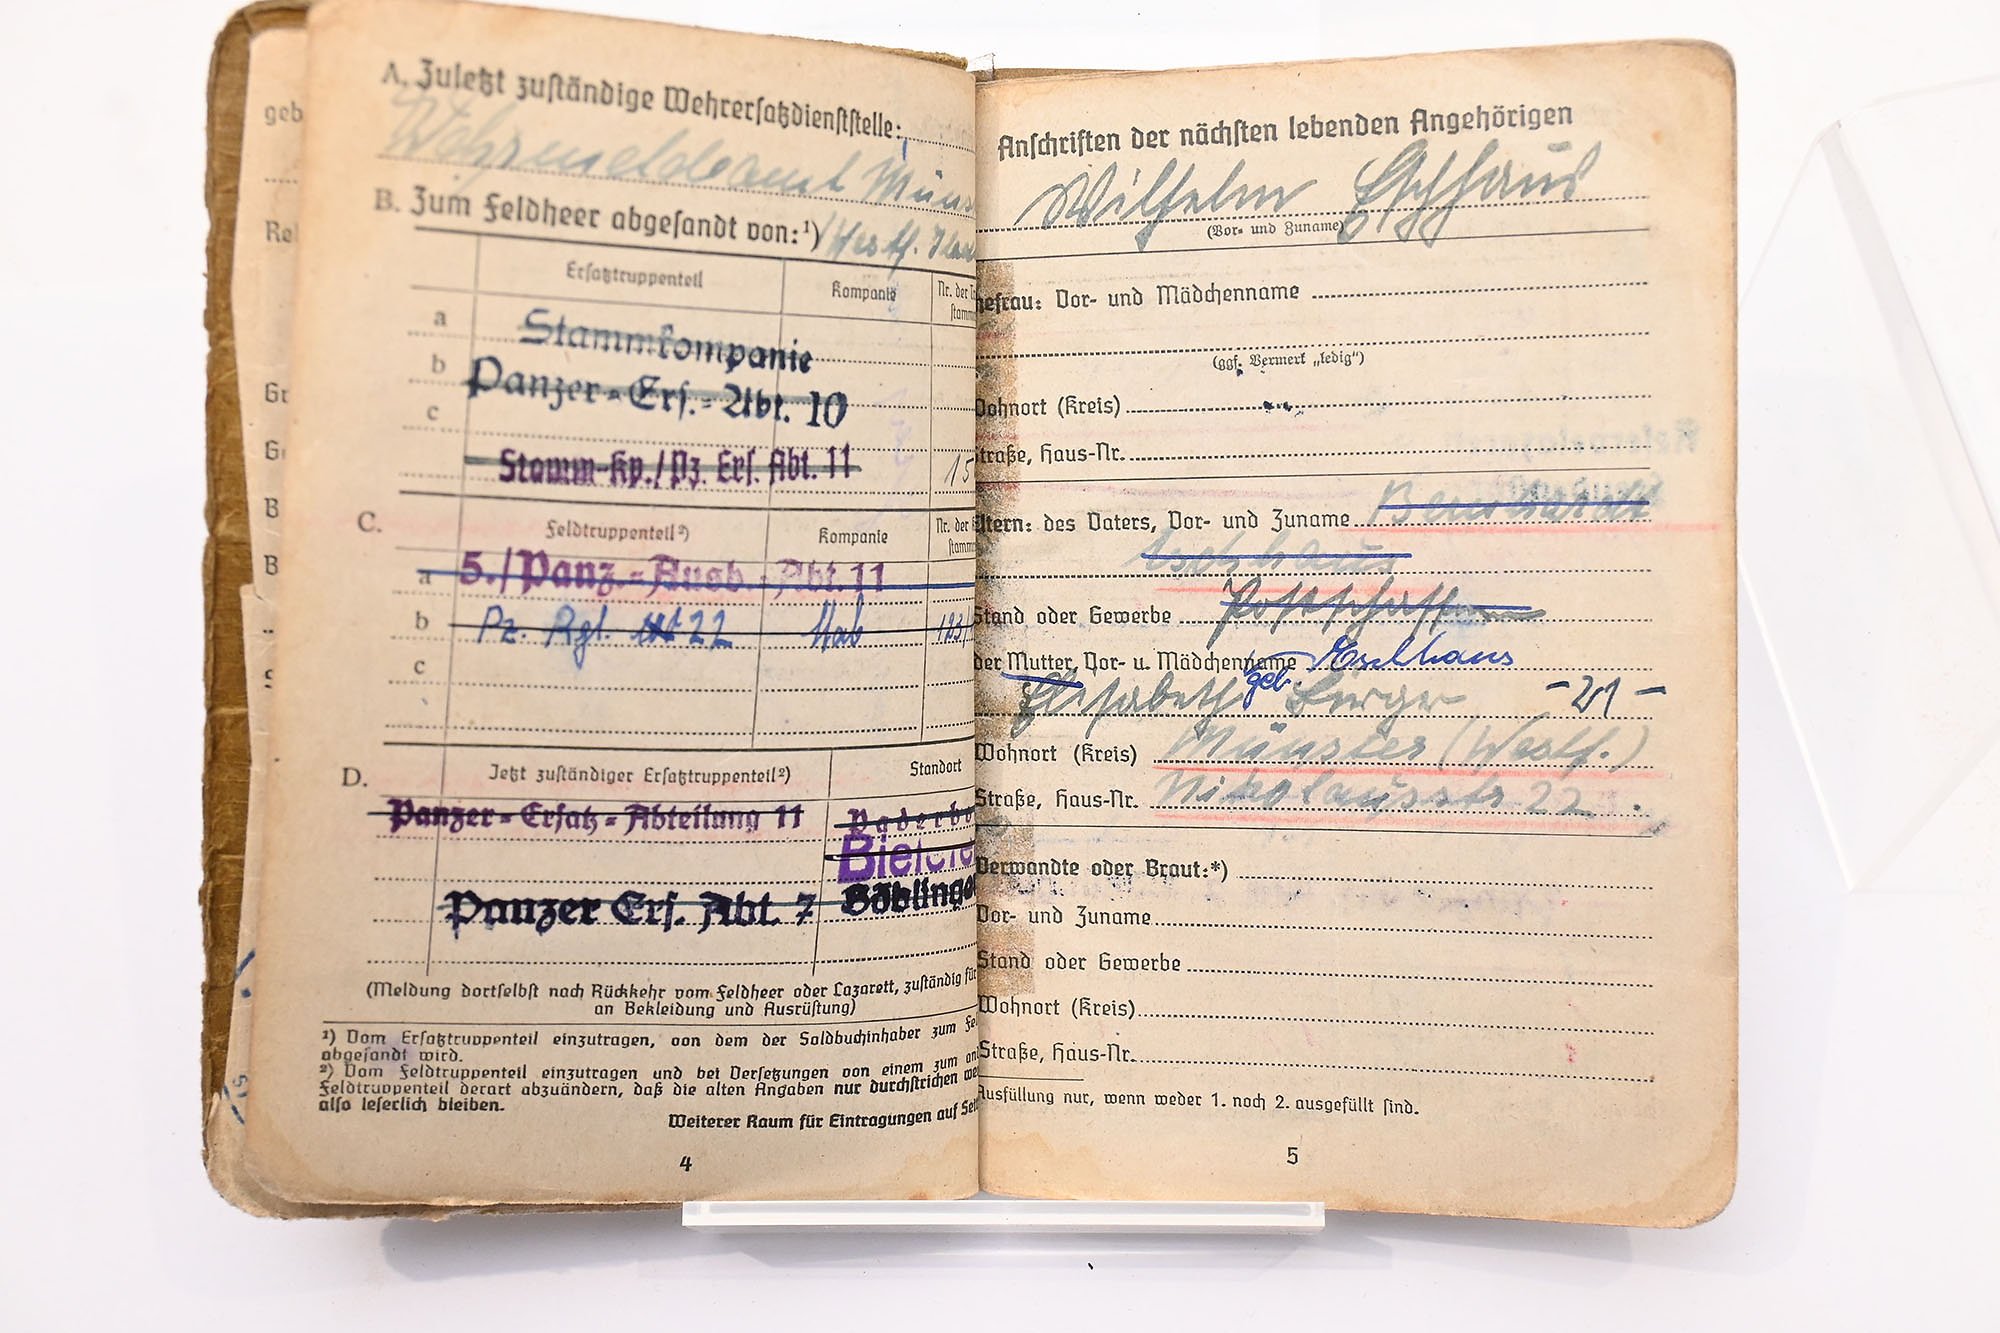 A. Zuletzt zuständige Wehrersatzdienststelle:
Wehrmeldeamt Müns
B. Zum Feldheer abgesandt von:¹)
Westf.
Ersatztruppenteil Kompanie Nr. der
a
Stammkompanie
b
Panzer-Ers.-Abt. 10
c
Stamm-Kp./Pz. Ers. Abt. 11 15
C. Feldtruppenteil²) Kompanie Nr. der
a 5./Panz.-Ausb.-Abt. 11
b Pz. Rgt. 22 Stab 123/
c
D. Jetzt zuständiger Ersatztruppenteil²) Standort
Panzer-Ersatz-Abteilung 11 Paderbo
Bielefe
Panzer Ers. Abt. 7 Böblinge
(Meldung dortselbst nach Rückkehr vom Feldheer oder Lazarett, zuständig für
an Bekleidung und Ausrüstung)
¹) Vom Ersatztruppenteil einzutragen, von dem der Soldbuchinhaber zum Fe
abgesandt wird.
²) Vom Feldtruppenteil einzutragen und bei Versetzungen von einem zum an
Feldtruppenteil derart abzuändern, daß die alten Angaben nur durchstrichen we
also leserlich bleiben.
Weiterer Raum für Eintragungen auf Sei
4
geb
Rel
Gr
G
B
B
Anschriften der nächsten lebenden Angehörigen
Wilhelm Eschhaus
(Vor- und Zuname)
hefrau: Vor- und Mädchenname
(ggf. Vermerk „ledig“)
Wohnort (Kreis)
traße, Haus-Nr.
ltern: des Vaters, Vor- und Zuname Bernhard
Eschhaus
Stand oder Gewerbe Postschaffner
der Mutter, Vor- u. Mädchenname Eschhaus
Elisabeth geb. Berger -21-
Wohnort (Kreis) Münster (Westf.)
Straße, Haus-Nr. Nikolausstr 22.
Verwandte oder Braut:*)
Vor- und Zuname
Stand oder Gewerbe
Wohnort (Kreis)
Straße, Haus-Nr.
Ausfüllung nur, wenn weder 1. noch 2. ausgefüllt sind.
5